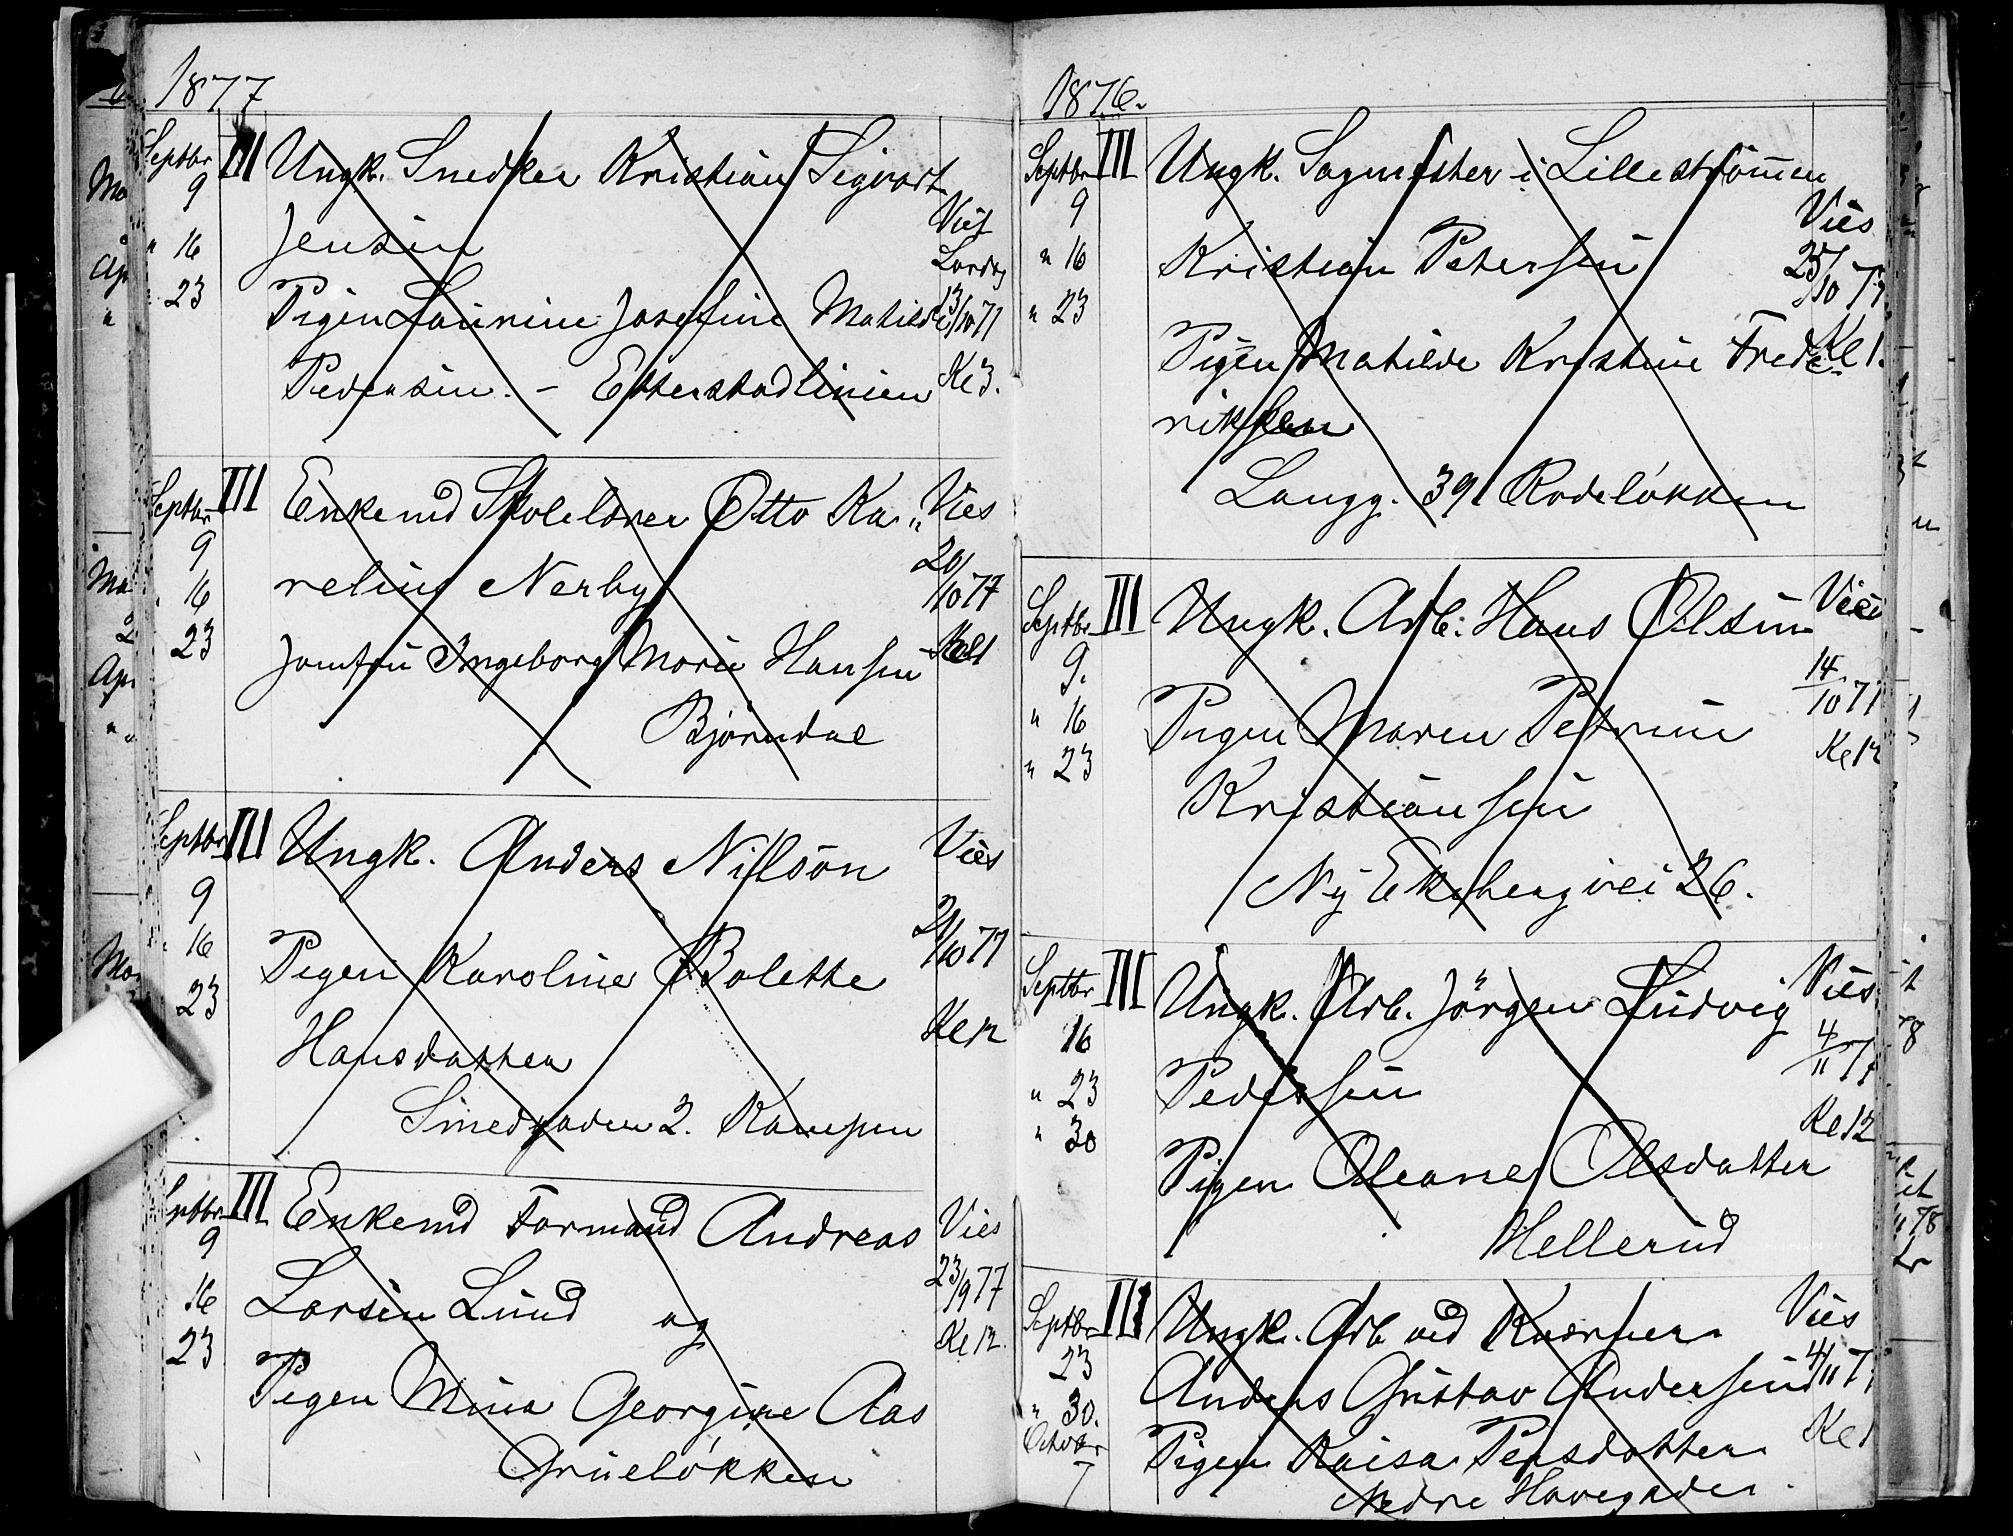 1877
Septbr III Ungk. Snedker Kristian Sigvart
9
" 16 Jensen Viet
Lørdag
" 23 Pigen Laurine Josefine Mathilde 13/10 77
Pedersen. - Etterstadlinien Kl 3.
Septbr III Enkemd Skolelærer Otto Ka- Vies
9 20/10 77
16 relius Nerby
23 Jomfru Ingeborg Marie Hansen Kl 1
Bjørndal
Septbr III Ungk. Anders Nilson Vies
9
" 16 Pigen Karoline Bolette 21/10 77
23
Hansdatter Kl 12
Smedgaden 2. Kampen
Septbr III Enkemd Formand Andreas Vies
9
16 Larsen Lund og 23/9 77
23 Kl 12.
Pigen Mina Georgine Aas
Grüneløkken
1876.
Septbr III Ungk. Sagmester i Lillestrømmen
9 Vies
" 16 Kristian Petersen 25/10 77
" 23
Pigen Mathilde Kristine Frede- Kl 1.
riksen
Langg. 39 Rodeløkken
Septbr III Ungk. Arb. Hans Olsen Vies
9. 14/10 77
" 16 Pigen Maren Petrine
" 23 Kl 12
Kristiansen
Ny Ekebergvei 26.
Septbr III Ungk. Arb. Jörgen Ludvig Vies
16 4/11 77
" 23 Pedersen
" 30 Kl 12
Pigen Oleane Olsdatter
Hellerud
Septbr III Ungk. Arb ved Kværner Vies
23 Anders Gustav Andersen 4/11 77
" 30.
Octobr Pigen Kaisa Persdatter Kl 1
7 Nedre Havegaden.